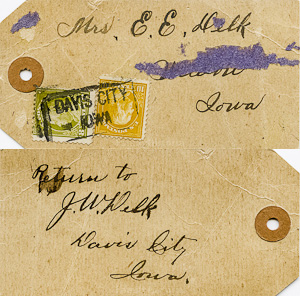 Mrs. E. E. Delk
Iowa
DAVIS CITY
IOWA
Return to
J. W. Delk
Davis City
Iowa.